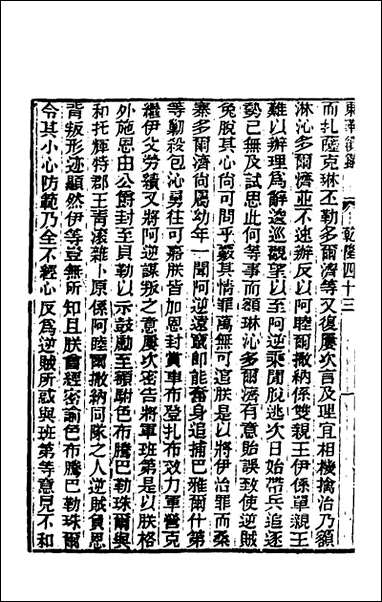 東華續錄 乾隆四十三
而扎薩克琳丕勒多爾濟等又復屢次言及理宜相機擒治乃額
淋沁多爾濟並不速辦反以阿睦爾撒納係雙親王伊係單親王
難以辦理為辭遠巡觀望以至阿逆乘閒脫逃次日始帶兵追逐
勢已無及試思此何等事而額琳沁多爾濟有意貽誤致使逆賊
免脫其心尚可問乎覈其情罪萬無可逭朕是以將伊治罪而桑
寨多爾濟尚屬幼年一聞阿逆遠竄即能奮身追捕巴雅爾什第
等勦殺包沁勇往可嘉朕皆加恩封賞車布登扎布效力軍營克
繼伊父勞績又將阿逆謀叛之意屢次密告將軍班第是以朕格
外施恩由公爵封至貝勒以示鼓勵至額駙色布騰巴勒珠爾與
和托輝特郡王青滾雜卜原係阿睦爾撒納同隊之人逆賊負恩
背叛形迹顯然伊等豈無所知且朕曾經密諭色布騰巴勒珠爾
令其小心防範乃全不輕心反為逆賊所惑與班第等意見不和